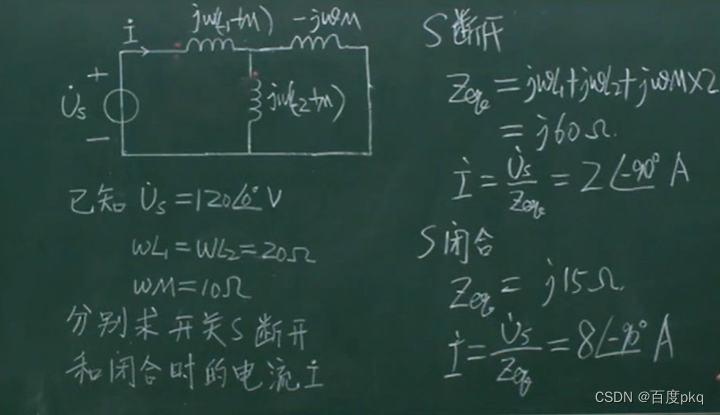 jω(L₁+M) -jωM
İ
+
U̇s
−
jω(L₂+M)
已知 U̇s=120∠0°V
ωL₁=ωL₂=20Ω
ωM=10Ω
分别求开关S断开
和闭合时的电流İ
S断开
Zeq=jωL₁+jωL₂+jωM×2
=j60Ω.
İ=U̇s/Zeq=2∠-90° A
S闭合
Zeq= j15Ω.
İ=U̇s/Zeq=8∠-90° A
CSDN @百度pkq